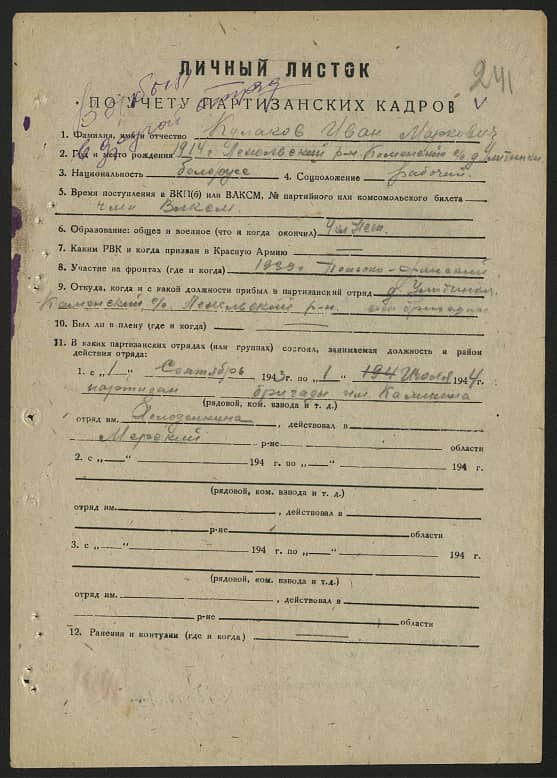 ЛИЧНЫЙ ЛИСТОК
241
ПО УЧЕТУ ПАРТИЗАНСКИХ КАДРОВ
Выбыл
в другой отряд
1. Фамилия, имя и отчество Кулаков Иван Маркович
2. Год и место рождения 1914 г. Лепельский р-н Каменский с/с д. Улитинки
3. Национальность белорус 4. Соцположение рабочий
5. Время поступления в ВКП(б) или ВЛКСМ, № партийного или комсомольского билета
член ВЛКСМ.
6. Образование: общее и военное (что и когда окончил)
7. Каким РВК и когда призван в Красную Армию
8. Участие на фронтах (где и когда) 1939 г.
9. Откуда, когда и с какой должности прибыл в партизанский отряд д. Улитинки
Каменский с/с. Лепельский р-н.
10. Был ли в плену (где и когда)
11. В каких партизанских отрядах (или группах) состоял, занимаемая должность и район
действия отряда:
1. с „1" Сентябрь 1943 г. по „1" Июля 1944 г.
партизан бригады им. Калинина
(рядовой, ком. взвода и т. д.)
отряд им. , действовал в
р-не области
2. с „ " 194 г. по „ " 194 г.
(рядовой, ком. взвода и т. д.)
отряд им. , действовал в
р-не области
3. с „ " 194 г. по „ " 194 г.
(рядовой, ком. взвода и т.д.)
отряд им. , действовал в
р-не области
12. Ранения и контузии (где и когда)